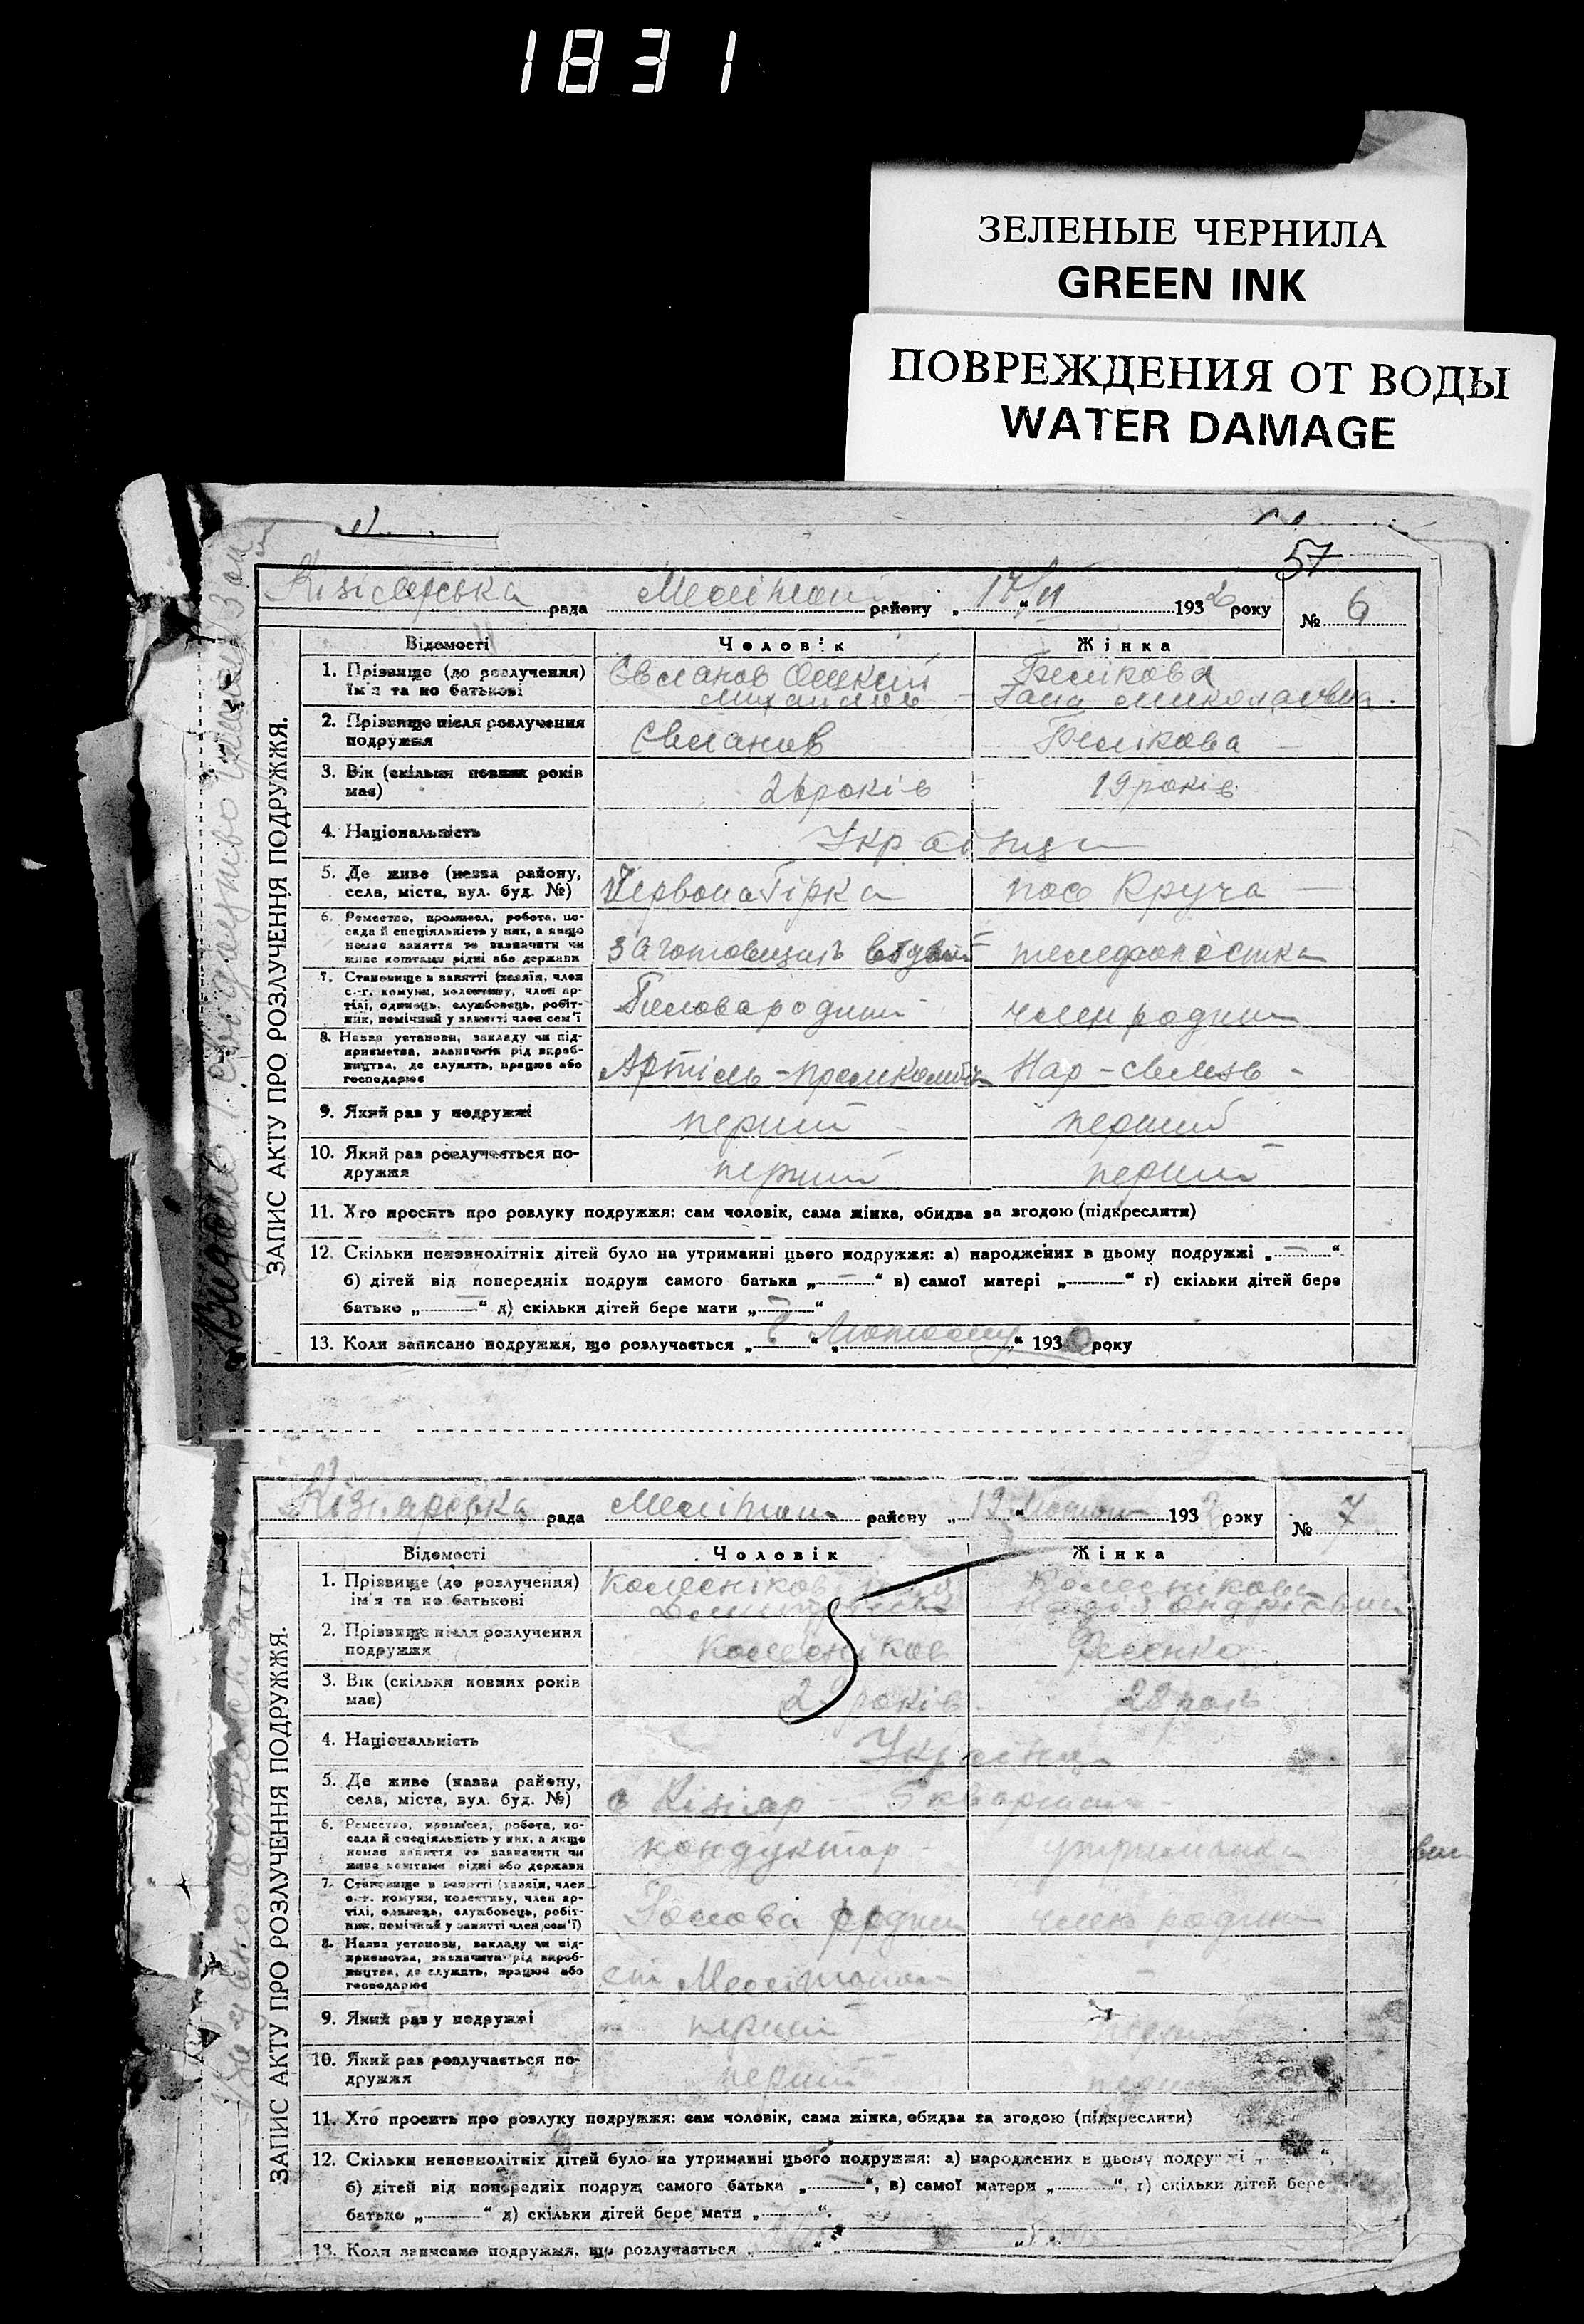 1831
ЗЕЛЕНЫЕ ЧЕРНИЛА
GREEN INK
ПОВРЕЖДЕНИЯ ОТ ВОДЫ
WATER DAMAGE
57
Кізіярська рада Меліт району „17/II 1932 року № 6
ЗАПИС АКТУ ПРО РОЗЛУЧЕННЯ ПОДРУЖЖЯ.
Відомості Чоловік Жінка
1. Прізвище (до розлучення) Белікова
ім'я та по батькові Гана Миколаївна.
2. Прізвище після розлучення
подружжя Белікова
3. Вік (скільки повних років
має) 26 років 19 років
4. Національність Українці
5. Де живе (назва району,
села, міста, вул. буд. №) Червона Гірка пос Круча
6. Ремество, промисел, робота, по-
сада й спеціяльність у них, а якщо
немає заняття то зазначити чи
живе коштами рідні або держави телефоністка
7. Становище в занятті (хазяїн, член
с.-г. комуни, колективу, член ар-
тілі, одинець, службовець, робіт-
ник, помічний у занятті член сем'ї Голова родини член родини
8. Назва установи, закладу чи під-
приємства, зазначити рід вироб-
ництва, де служить, працює або
господарює Артіль - Нар - связь -
9. Який раз у подружжі перший перший
10. Який раз розлучається по-
дружжя перший перший
11. Хто просить про розлуку подружжя: сам чоловік, сама жінка, обидва за згодою (підкреслити)
12. Скільки неповнолітніх дітей було на утриманні цього подружжя: а) народжених в цьому подружжі „—“
б) дітей від попередніх подруж самого батька „—“ в) самої матері „—“ г) скільки дітей бере
батько „—“ д) скільки дітей бере мати „—“
13. Коли записано подружжя, що розлучається „ “ „Лютого“ 193 року
Кізіярська рада Меліт району „19“ Лютого 1932 року № 7
ЗАПИС АКТУ ПРО РОЗЛУЧЕННЯ ПОДРУЖЖЯ.
Відомості Чоловік Жінка
1. Прізвище (до розлучення) Колесніков Колеснікова
ім'я та по батькові Надія
2. Прізвище після розлучення
подружжя Колесніков
3. Вік (скільки повних років
має) 2 років 28 років
4. Національність Українці
5. Де живе (назва району,
села, міста, вул. буд. №) с Кізіяр 5 квартал
6. Ремество, промисел, робота, по-
сада й спеціяльність у них, а якщо
немає заняття то зазначити чи
живе коштами рідні або держави кондуктор утриманка
7. Становище в занятті (хазяїн, член
с.-г. комуни, колективу, член ар-
тілі, одинець, службовець, робіт-
ник, помічний у занятті член сем'ї) Голова родини член родини
8. Назва установи, закладу чи під-
приємства, зазначити рід вироб-
ництва, де служить, працює або
господарює ст Мелітополь -
9. Який раз у подружжі перший
10. Який раз розлучається по-
дружжя перший
11. Хто просить про розлуку подружжя: сам чоловік, сама жінка, обидва за згодою (підкреслити)
12. Скільки неповнолітніх дітей було на утриманні цього подружжя: а) народжених в цьому подружжі „ “,
б) дітей від попередніх подруж самого батька „—“, в) самої матери „—“, г) скільки дітей бере
батько „—“ д) скільки дітей бере мати „—“.
13. Коли записано подружжя, що розлучається „ “ „